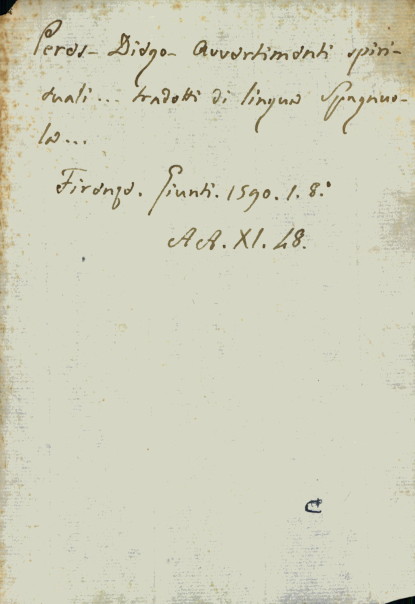 Peres- Diego- Avvertimenti spiri-
tuali... tradotti di lingua Spagnuo-
la...
Firenze. Giunti. 1590. 1. 8.º
AA. XI. 48.
C